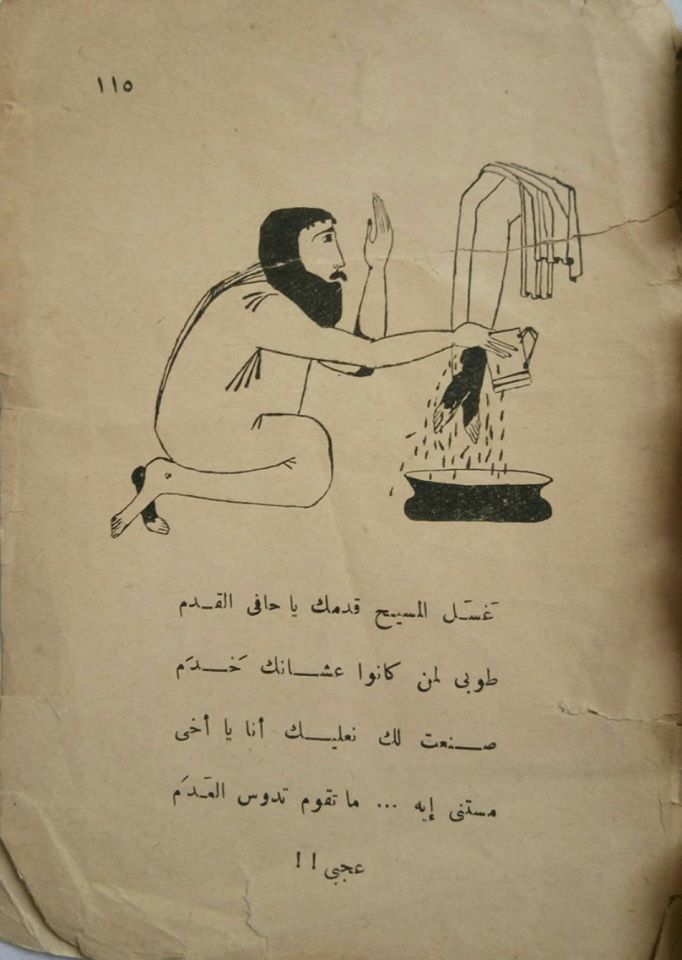 ١١٥
غَسَل المسيح قدمك يا حافى القدم
طوبى لمن كانوا عشانك خَدَم
صنعت لك نعليك أنا يا أخى
مستنى إيه ... ما تقوم تدوس العَدَم
عجبى !!